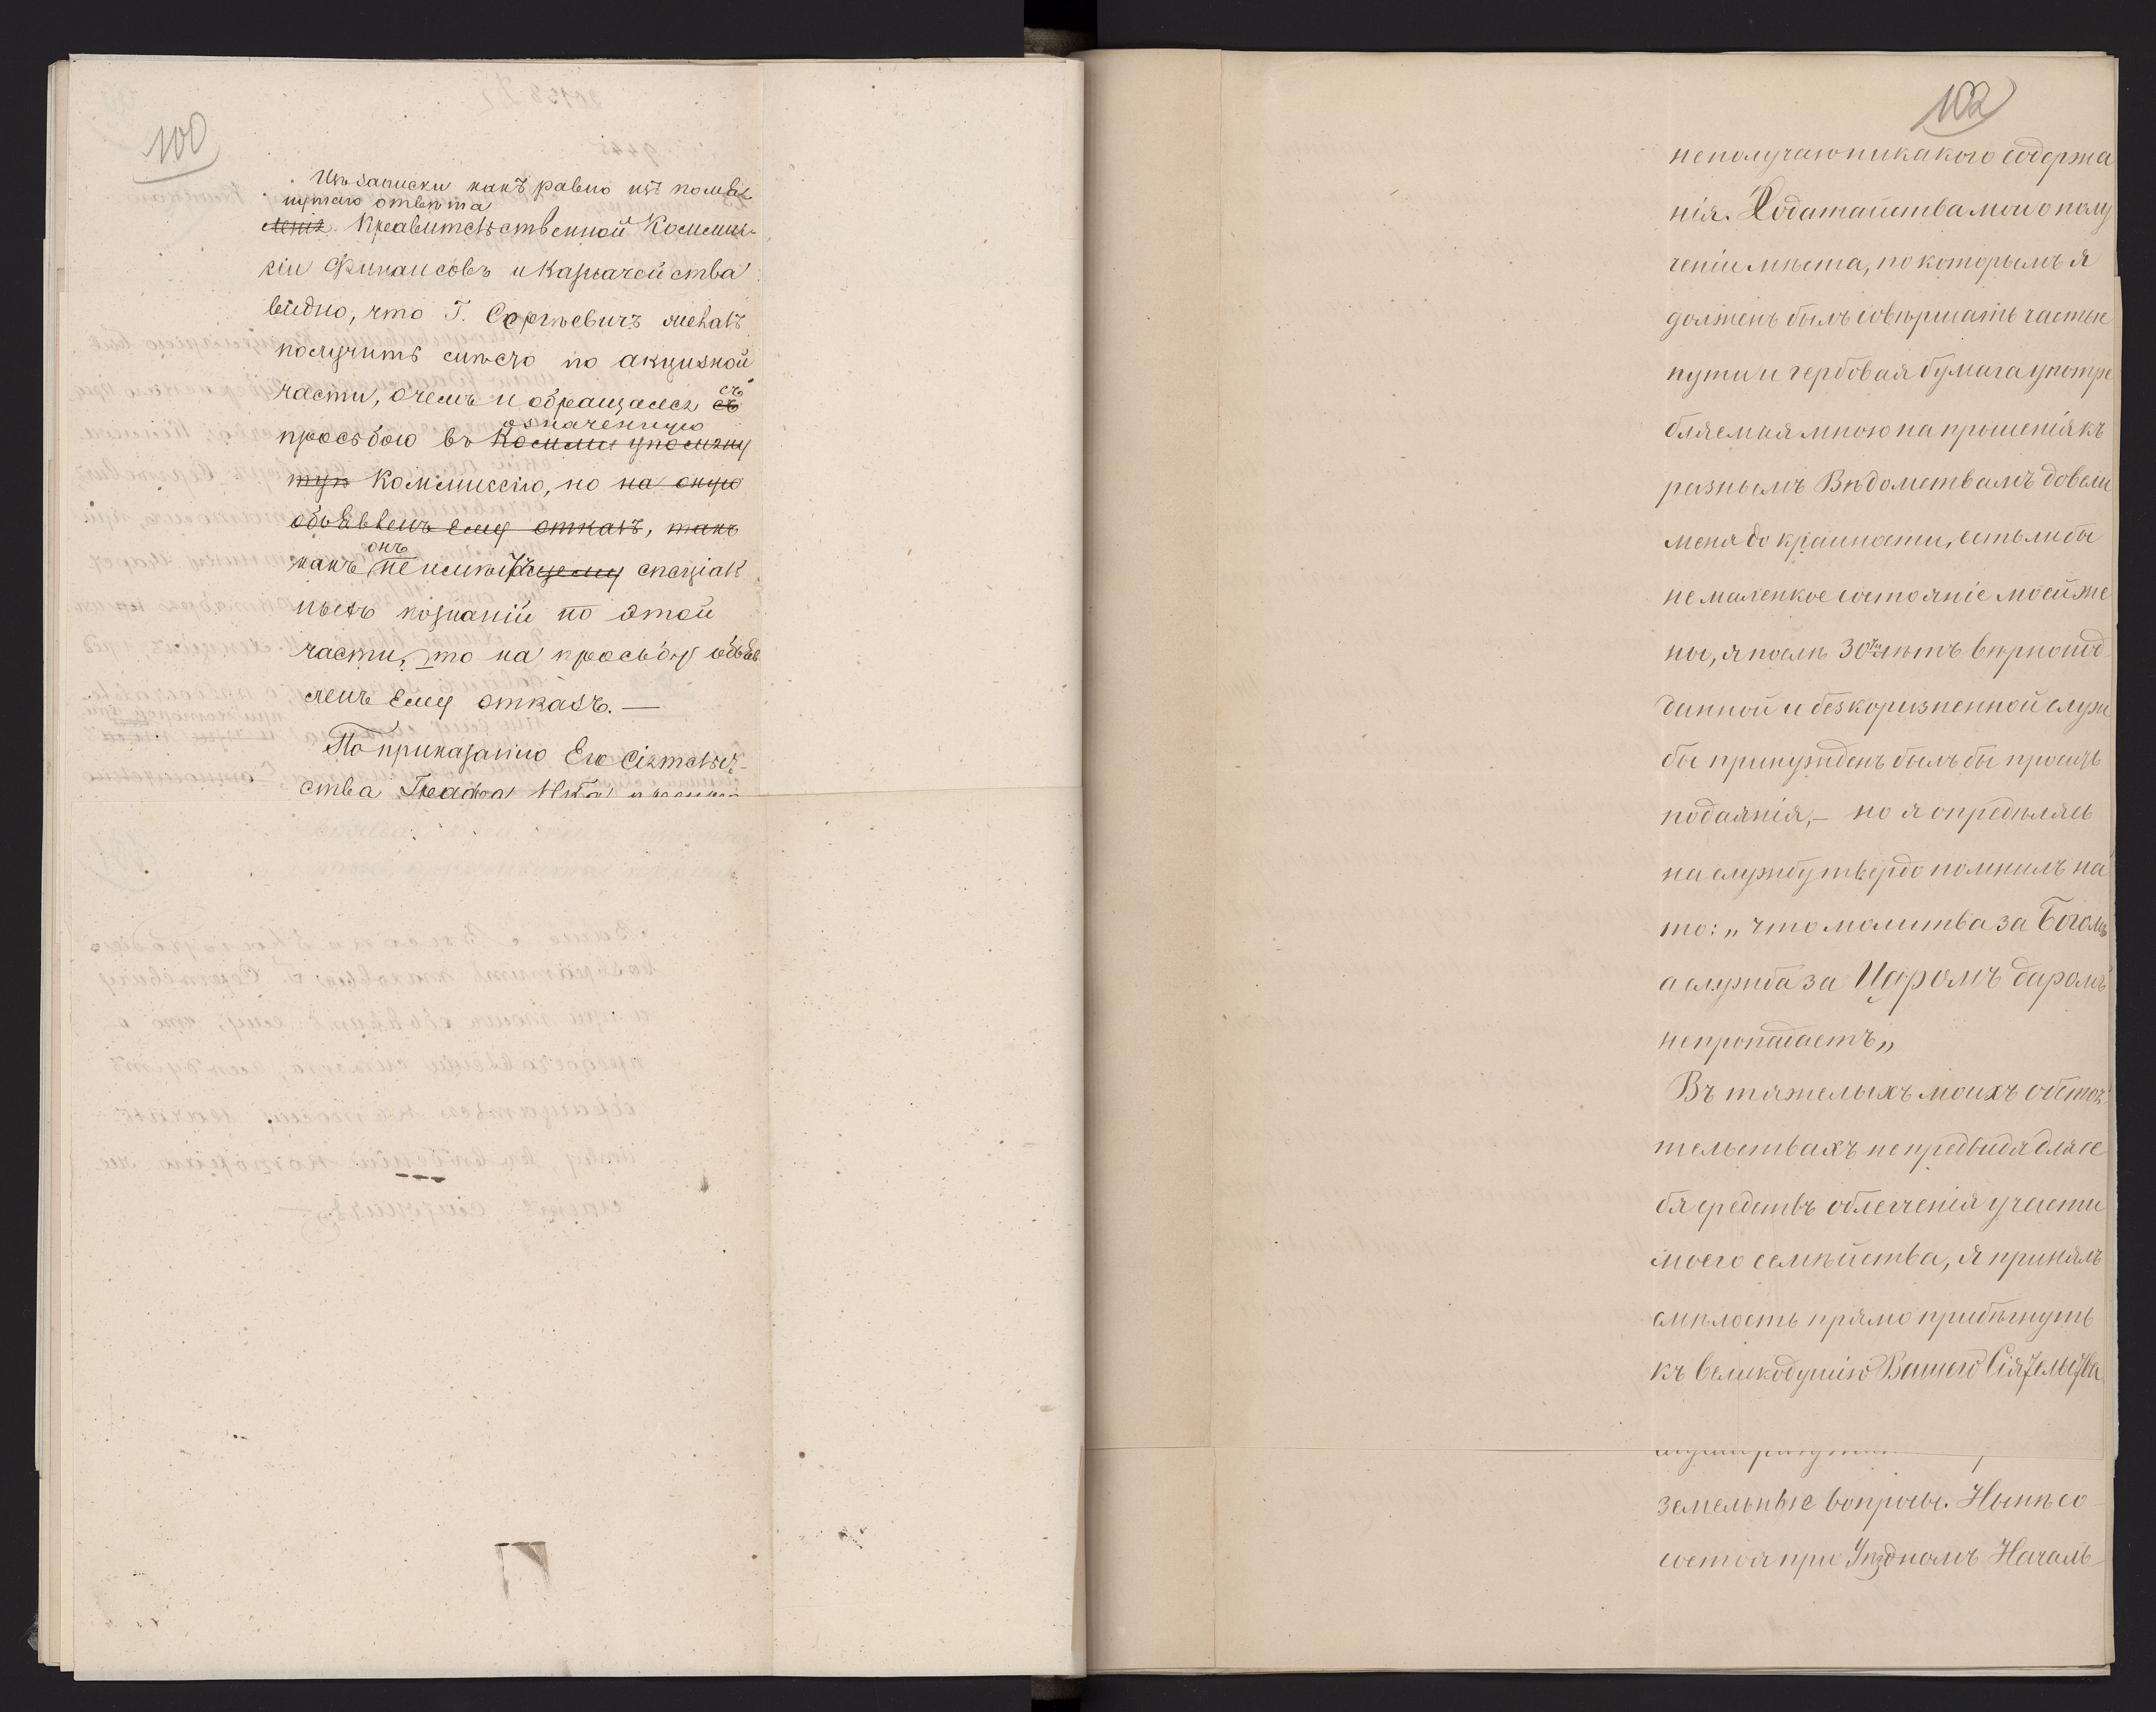 100
Изъ записки какъ равно изъ помѣ
щеннаго отвѣта
Правительственной Коммис-
сіи Финансовъ и Казначейства
видно, что Г. Сергѣевичъ желалъ
получить мѣсто по акцизной
части, о чемъ и обращался съ съ
означенную
просьбою въ Коммис упомяну
тую Коммиссію, но на оную
объявленъ ему отказъ, такъ
онъ
какъ не имѣющему спеціаль
ныхъ познаній по этой
части, то на просьбу объяв
ленъ ему отказъ. —
По приказанію Его Сіятель-
ства Графа
102
неполучаю никакого содержа
нія. Ходатайства мои о полу
ченіи мѣста, по которымъ я
долженъ былъ совершать частые
пути и гербовая бумага употре
бляемая мною на прошенія къ
разнымъ Вѣдомствамъ довели
меня до крайности, естьлибы
не маленкое состояніе моей же
ны, я послѣ 30ти лѣтъ вѣрнопод
данной и безкорызненной служ
бы принужденъ былъ бы просить
подаянія, — но я опредѣляясь
на службу твердо помнилъ на
то: „что молитва за Богомъ
а служба за Царомъ даромъ
непропадаетъ„
Въ тяжелыхъ моихъ обстоя
тельствахъ не предвидя для се
бя средствъ облегченія участи
моего семѣйства, я принялъ
смѣлость прямо прибѣгнуть
къ великодушію Вашего Сіятельства
земельные вопросы. Нынѣ со-
состоя при Уѣздномъ Началь-